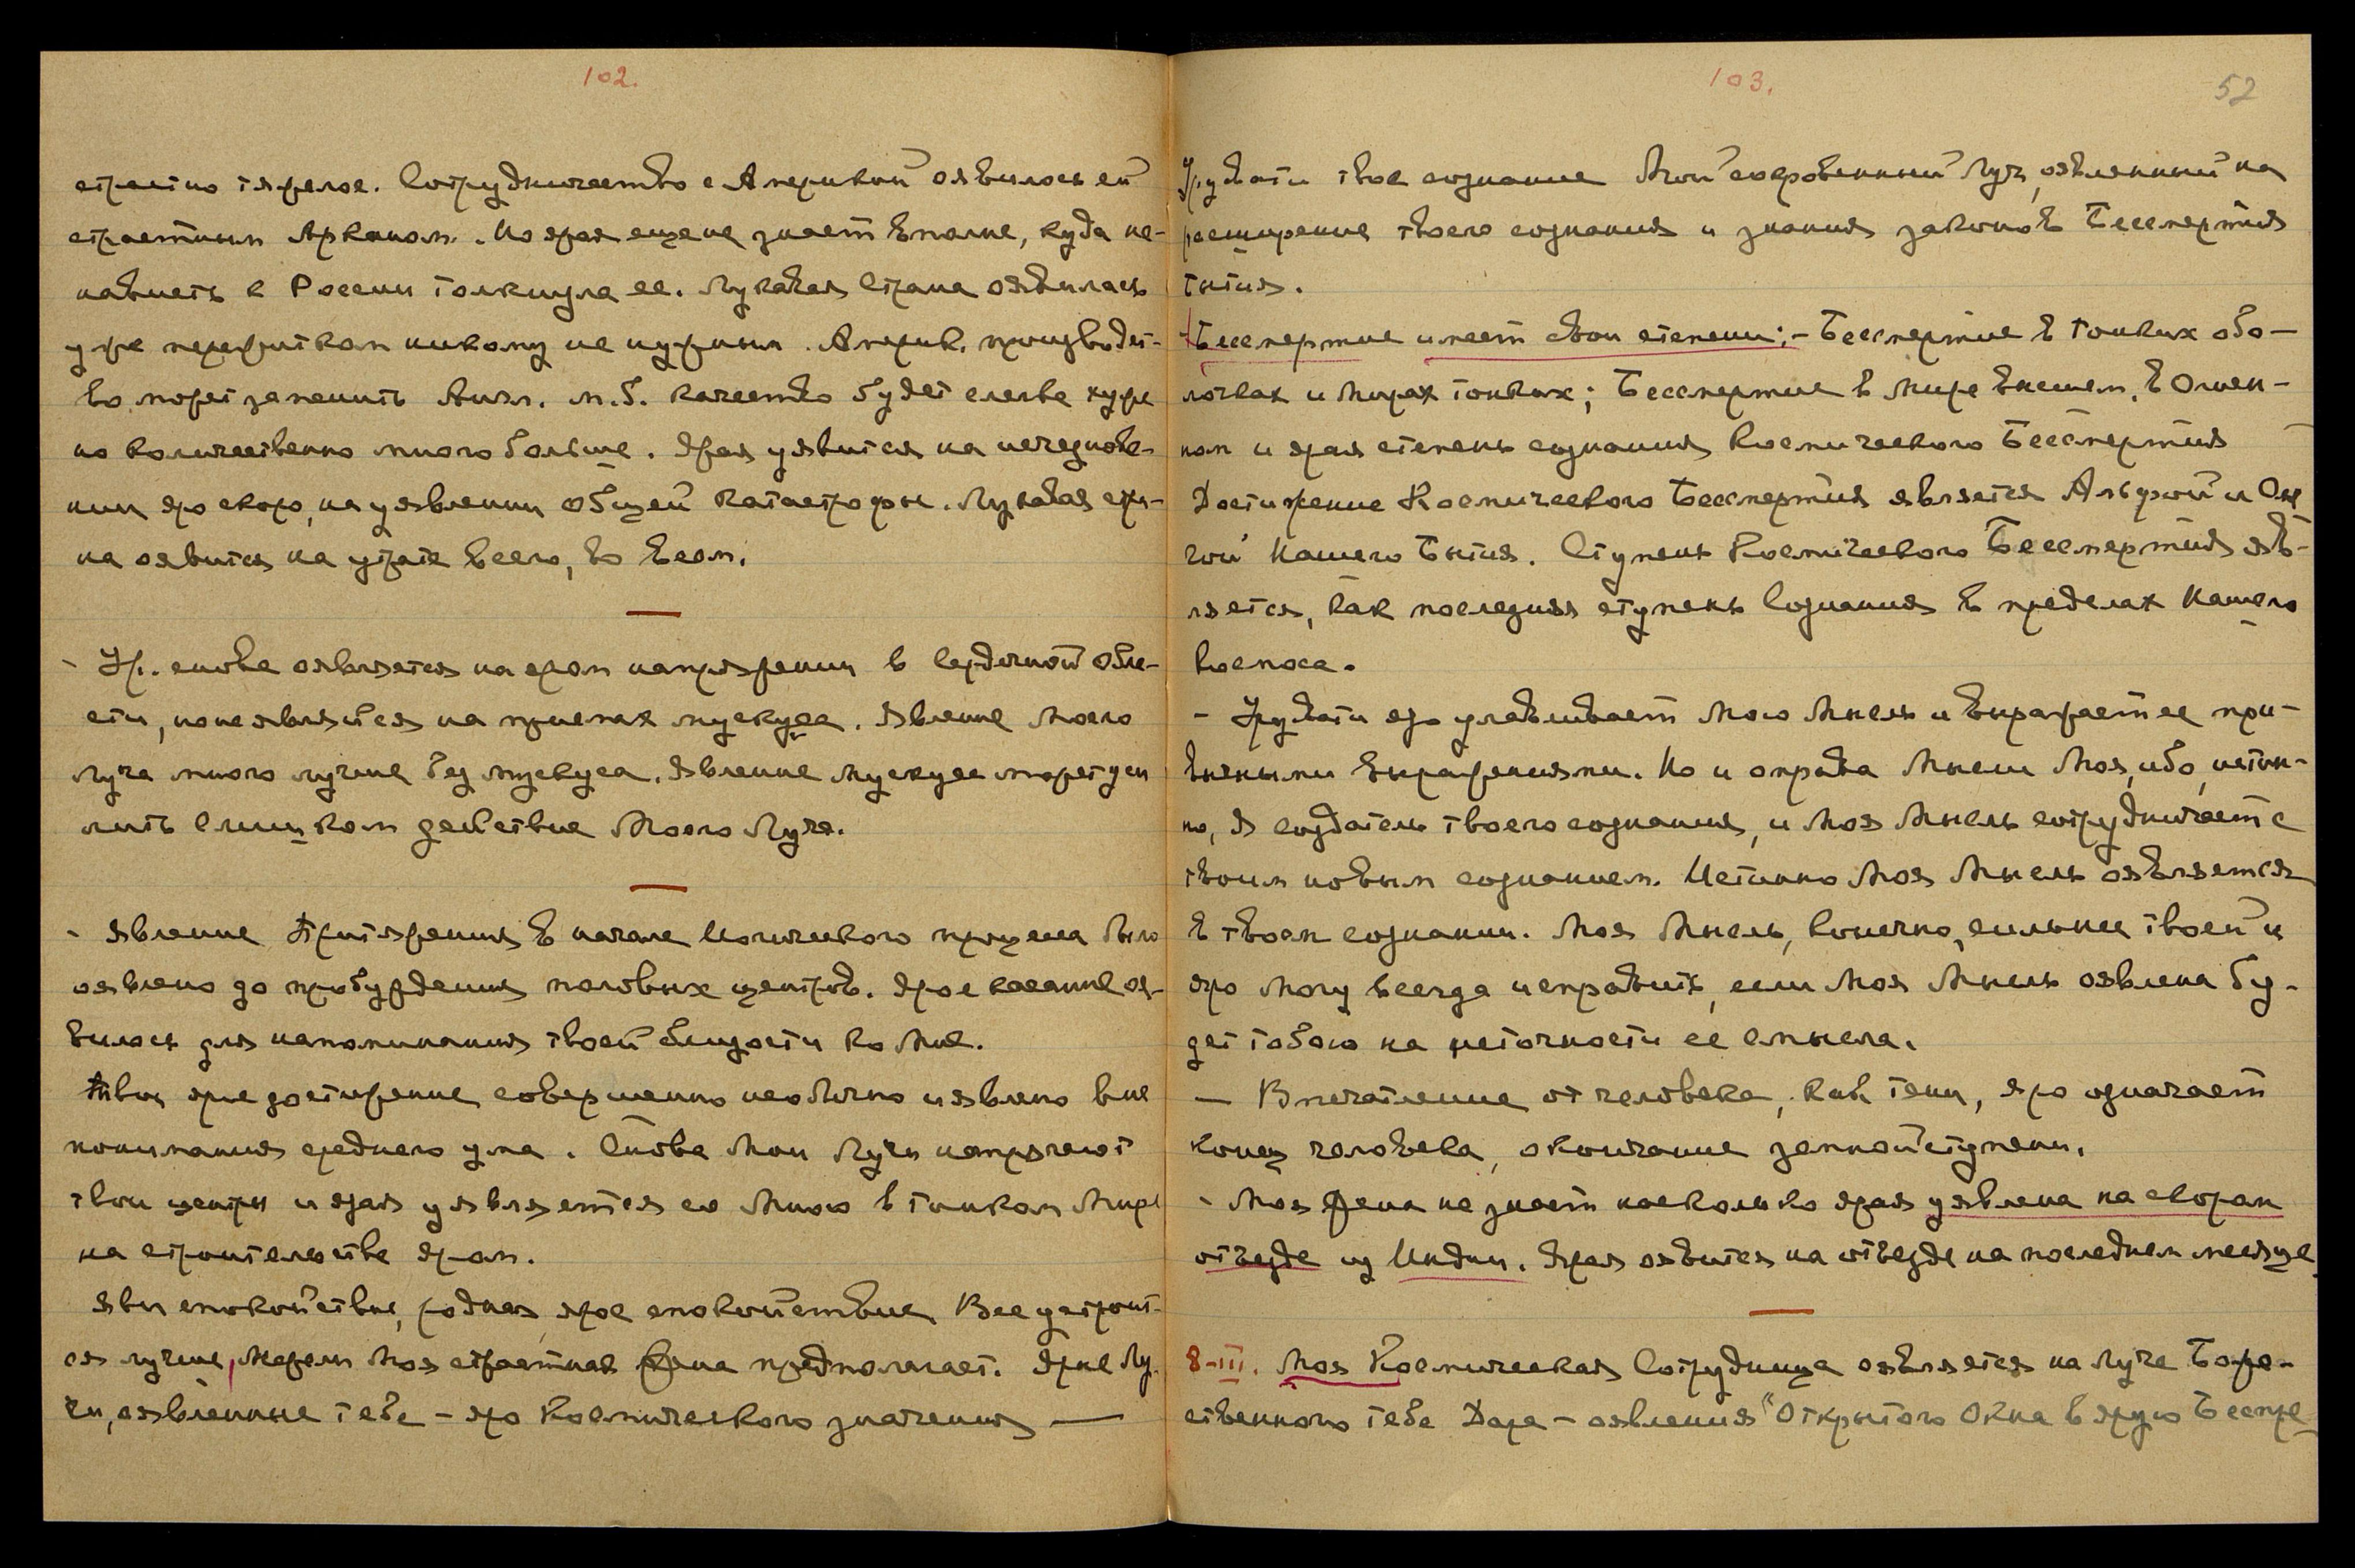 102.
страстно тяжелое. Сотрудничество с Америкой оявилось ей
страстным Арканом. Но ярая еще не знает вполне, куда не-
нависть к России толкнула ее. Лукавая Страна оявилась
уже пережитком никому не нужным. Америк. производст-
во может заменить Англ. м.б. качество будет слегка хуже
но количественно много больше. Ярая уявится на исчезнове-
нии яро скоро, на уявлении общей катастрофы. Лукавая стра-
на оявится на утрате всего, во всем.
- Ур. снова оявляется на яром напряжении в сердечной обла-
сти, но не являйся на приемах мускуса. Явление Моего
Луча много лучше без мускуса. Явление мускуса может уси
лить слишком действие Моего Луча.
- Явление притяжения в начале Иогического процесса было
оявлено до пробуждения половых центров. Ярое касание оя-
вилось для напоминания твоей близости ко Мне.
Твои ярые достижение совершенно необычно и явлено вне
понимания среднего ума. Снова Мои Лучи напрягают
твои центры и ярая уявляется со Мною в Тонком Мире
на строительстве яром.
Яви спокойствие, родная, ярое спокойствие Все устроит-
ся лучше, нежели Моя страстная Жена предполагает. Ярые Лу-
чи, оявленные тебе - яро космического значения —
103.
52
Урувати твое сознание Мой сокровенный Луч, оявленный на
расширение твоего сознания и знания законов Бессмертия
Бытия.
Бессмертие имеет свои степени; - Бессмертие в тонких обо-
лочках и Мирах тонких; Бессмертие в Мире Высшем, в Огнен-
ном и ярая степень сознания Космического Бессмертия
Достижение Космического Бессмертия является Альфой и Оме
гой Нашего Бытия. Ступень Космического Бессмертия яв-
ляется, как последняя ступень Сознания в пределах Нашего
Космоса.
- Урувати яро улавливает Мою Мысль и выражает ее при-
вычными выражениями. Но и оправа Мысли Моя, ибо, истин-
но, Я создатель твоего сознания, и Моя Мысль сотрудничает с
твоим новым сознанием. Истинно Моя Мысль оявляется
в твоем сознании. Моя Мысль, конечно, сильнее твоей и
яро могу всегда исправить, если Моя Мысль оявлена бу-
дет тобою на неточности ее смысла.
— Впечатление от человека, как тени, яро означает
конец человека, окончание земной ступени.
- Моя Жена не знает насколько ярая уявлена на скором
отъезде из Индии. Ярая оявится на отъезде на последнем месяце
8-III. Моя Космическая Сотрудница оявляется на Луче Боже-
ственного тебе Дара - оявления "Открытого Окна в ярую Беспре